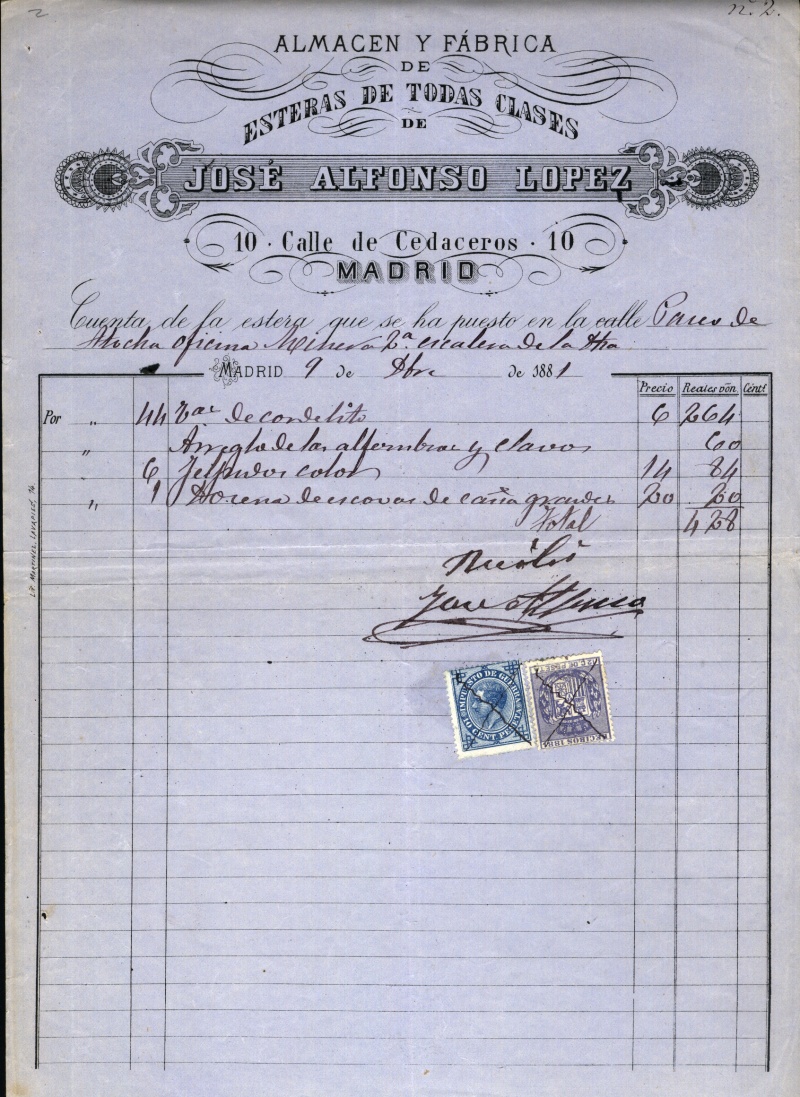 2
n. 2.
ALMACEN Y FÁBRICA
DE
ESTERAS DE TODAS CLASES
DE
JOSÉ ALFONSO LOPEZ
10 · Calle de Cedaceros · 10
MADRID
Cuenta de la estera que se ha puesto en la calle Paseo de
Atocha oficina 2ª escalera de la
MADRID 9 de de 1881
Precio Reales vón. Cent.
Por " 44 Vas de cordelito 6 264
" Arreglo de las alfombras y clavos 60
" 6 Felpudos color 14 84
" 1 Docena de escovas de caña grandes 20 20
Total 428
Recibí
Jose Alfonso
IMPUESTO DE GUERRA
10 CENT PESETA
12 C. DE PESETA
GIROS 1881
LIT. MARTINEZ, LAVAPIES, 14